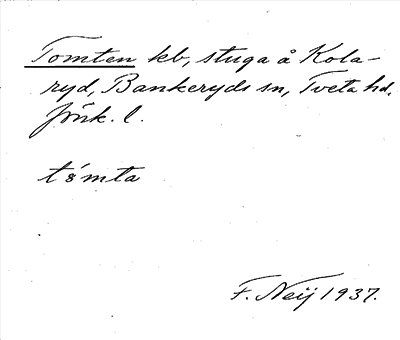 Tomten kb, stuga å Kola-
ryd, Bankeryds sn, Tveta hd,
Jönk. l.
tómta
F. Neij 1937.